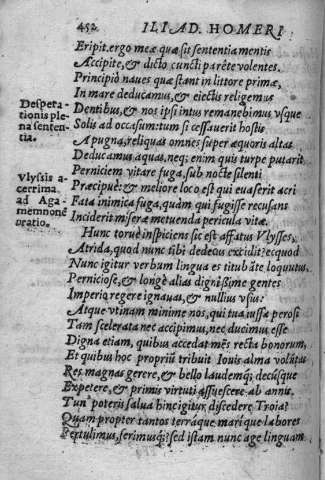 452 ILIAD. HOMERI
Eripit. ergo meæ quæ sit sententia mentis
Accipite, & dicto cuncti parēte volentes.
Principiò naues quæ stant in littore primæ,
In mare deducamus, & eiectis religemus
Despera-
tionis ple-
na senten-
tia.
Dentibus, & nos ipsi intus remanebimus vsque
Solis ad occasum: tum si cessauerit hostis
A pugna, reliquas omnes super æquoris altas
Deducamus aquas, neq; enim quis turpe putarit
Perniciem vitare fuga, sub nocte silenti
Vlyssis a-
cerrima
ad Aga-
memnonē
oratio.
Præcipuè: & meliore loco est qui euaserit acri
Fata inimica fuga, quàm qui fugisse recusans
Inciderit miseræ metuenda pericula vitæ.
Hunc toruè inspiciens sic est affatus Vlysses,
Atrida, quod nunc tibi dedecus excidit? ecquod
Nunc igitur verbum lingua es titubāte loquutus,
Perniciose, & longè alias dignissime gentes
Imperio regere ignauas, & nullius vsus?
Atque vtinam minime nos, qui tua iussa perosi
Tam scelerata nec accipimus, nec ducimus esse
Digna etiam, quibus accedat mēs recta bonorum,
Et quibus hoc propriū tribuit Iouis alma volūtas
Res magnas gerere, & bello laudemq; decúsque
Expetere, & primis virtuti assuescere ab annis.
Tun' poteris salua hinc igitur discedere Troia?
Quam propter tantos terráque marique labores
Pertulimus, ferimusq;? sed istam nunc age linguam